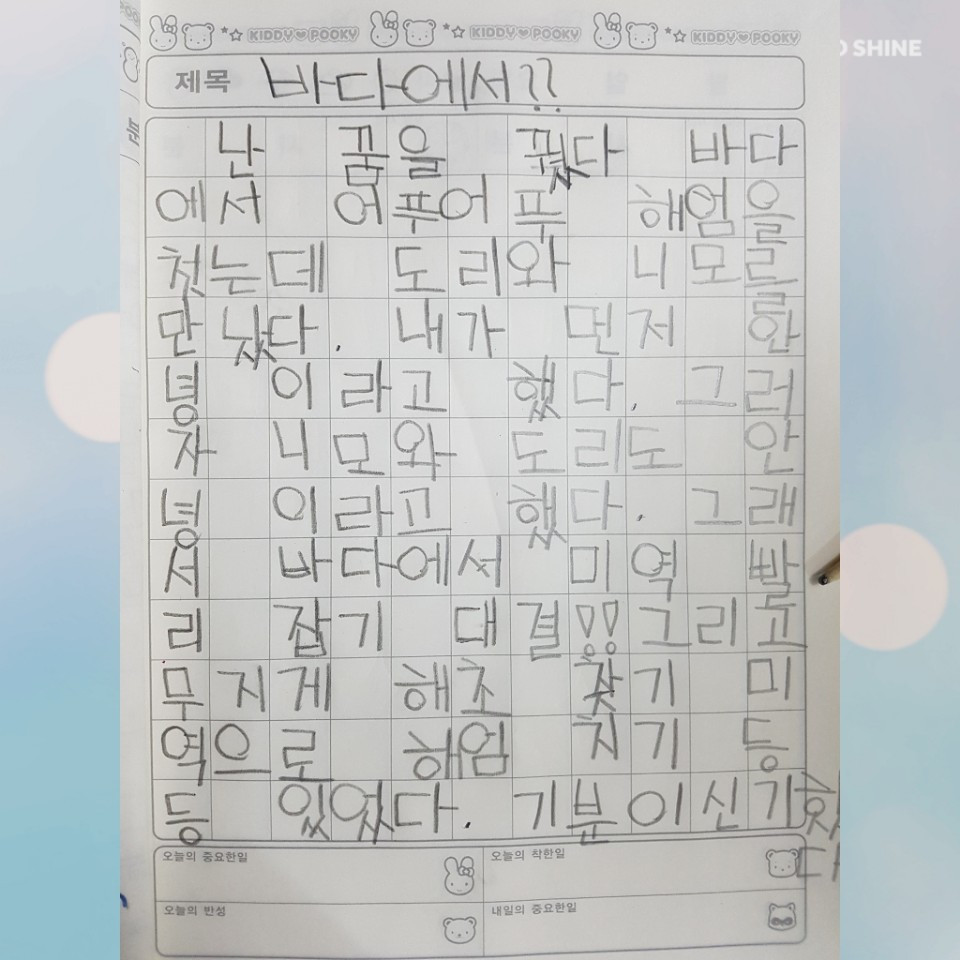 KIDDY♥POOKY KIDDY♥POOKY KIDDY♥POOKY
SHINE
제목 바다에서??
난 꿈을 꿨다 바다
에서 어푸어푸 해엄을
첫는데 도리와 니모를
만났다. 내가 먼저 안
녕 이라고 했다. 그러
자 니모와 도리도 안
녕 이라고 했다. 그래
서 바다에서 미역 빨
리 잡기 대결!!! 그리고
무지게 해초 찾기 미
역으로 해엄 치기 등
등 있었다. 기분이신기했
다
오늘의 중요한일 오늘의 착한일
오늘의 반성 내일의 중요한일